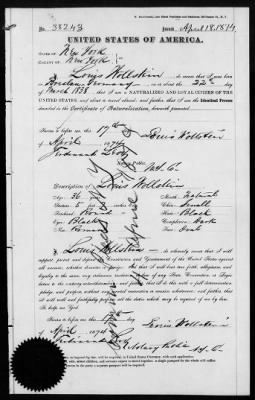 No. 38243 Issued April 18, 1874
UNITED STATES OF AMERICA.
STATE OF New York
COUNTY OF New York
I, Louis Wollstein do swear that I was born
in Germany on or about the 22d day
of March 1838 that I am a NATURALIZED AND LOYAL CITIZEN OF THE
UNITED STATES, and about to travel abroad; and further, that I am the Identical Person
described in the Certificate of Naturalization, herewith presented.
Sworn to before me, this 17th day
of April 1874
Louis Wollstein
Notary Public.
N.Y.C.
Description of Louis Wollstein
Age: 36
Mouth: Natural
Stature: 5 feet
Chin: Small
Forehead: Round
Hair: Black
Eyes: Black
Complexion: Dark
Nose: Roman
Face: Oval
I, Louis Wollstein do solemnly swear that I will
support, protect and defend the Constitution and Government of the United States against
all enemies, whether domestic or foreign; and that I will bear true faith, allegiance, and
loyalty to the same, any ordinance, resolution or law of any State, Convention or Legis-
lature to the contrary notwithstanding; and further, that I do this with a full determination,
pledge, and purpose, without any mental reservation or evasion whatsoever; and further, that
I will well and faithfully perform all the duties which may be required of me by law.
So help me God.
Sworn to before me, this 17 day
of April 1874
Louis Wollstein
Notary Public N.Y.C.